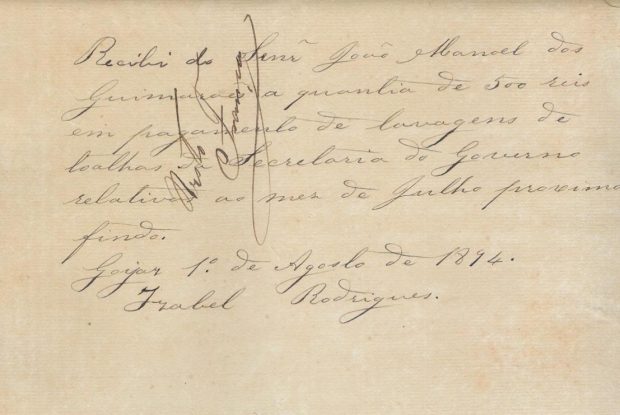 Recibi do Senr̃ João Manoel dos
Guimarães a quantia de 500 reis
em pagamento de lavagens de
toalhas da Secretaria do Governo
relativo ao mez de Julho proximo
findo.
Goyaz 1º de Agosto de 1894.
Izabel Rodrigues.